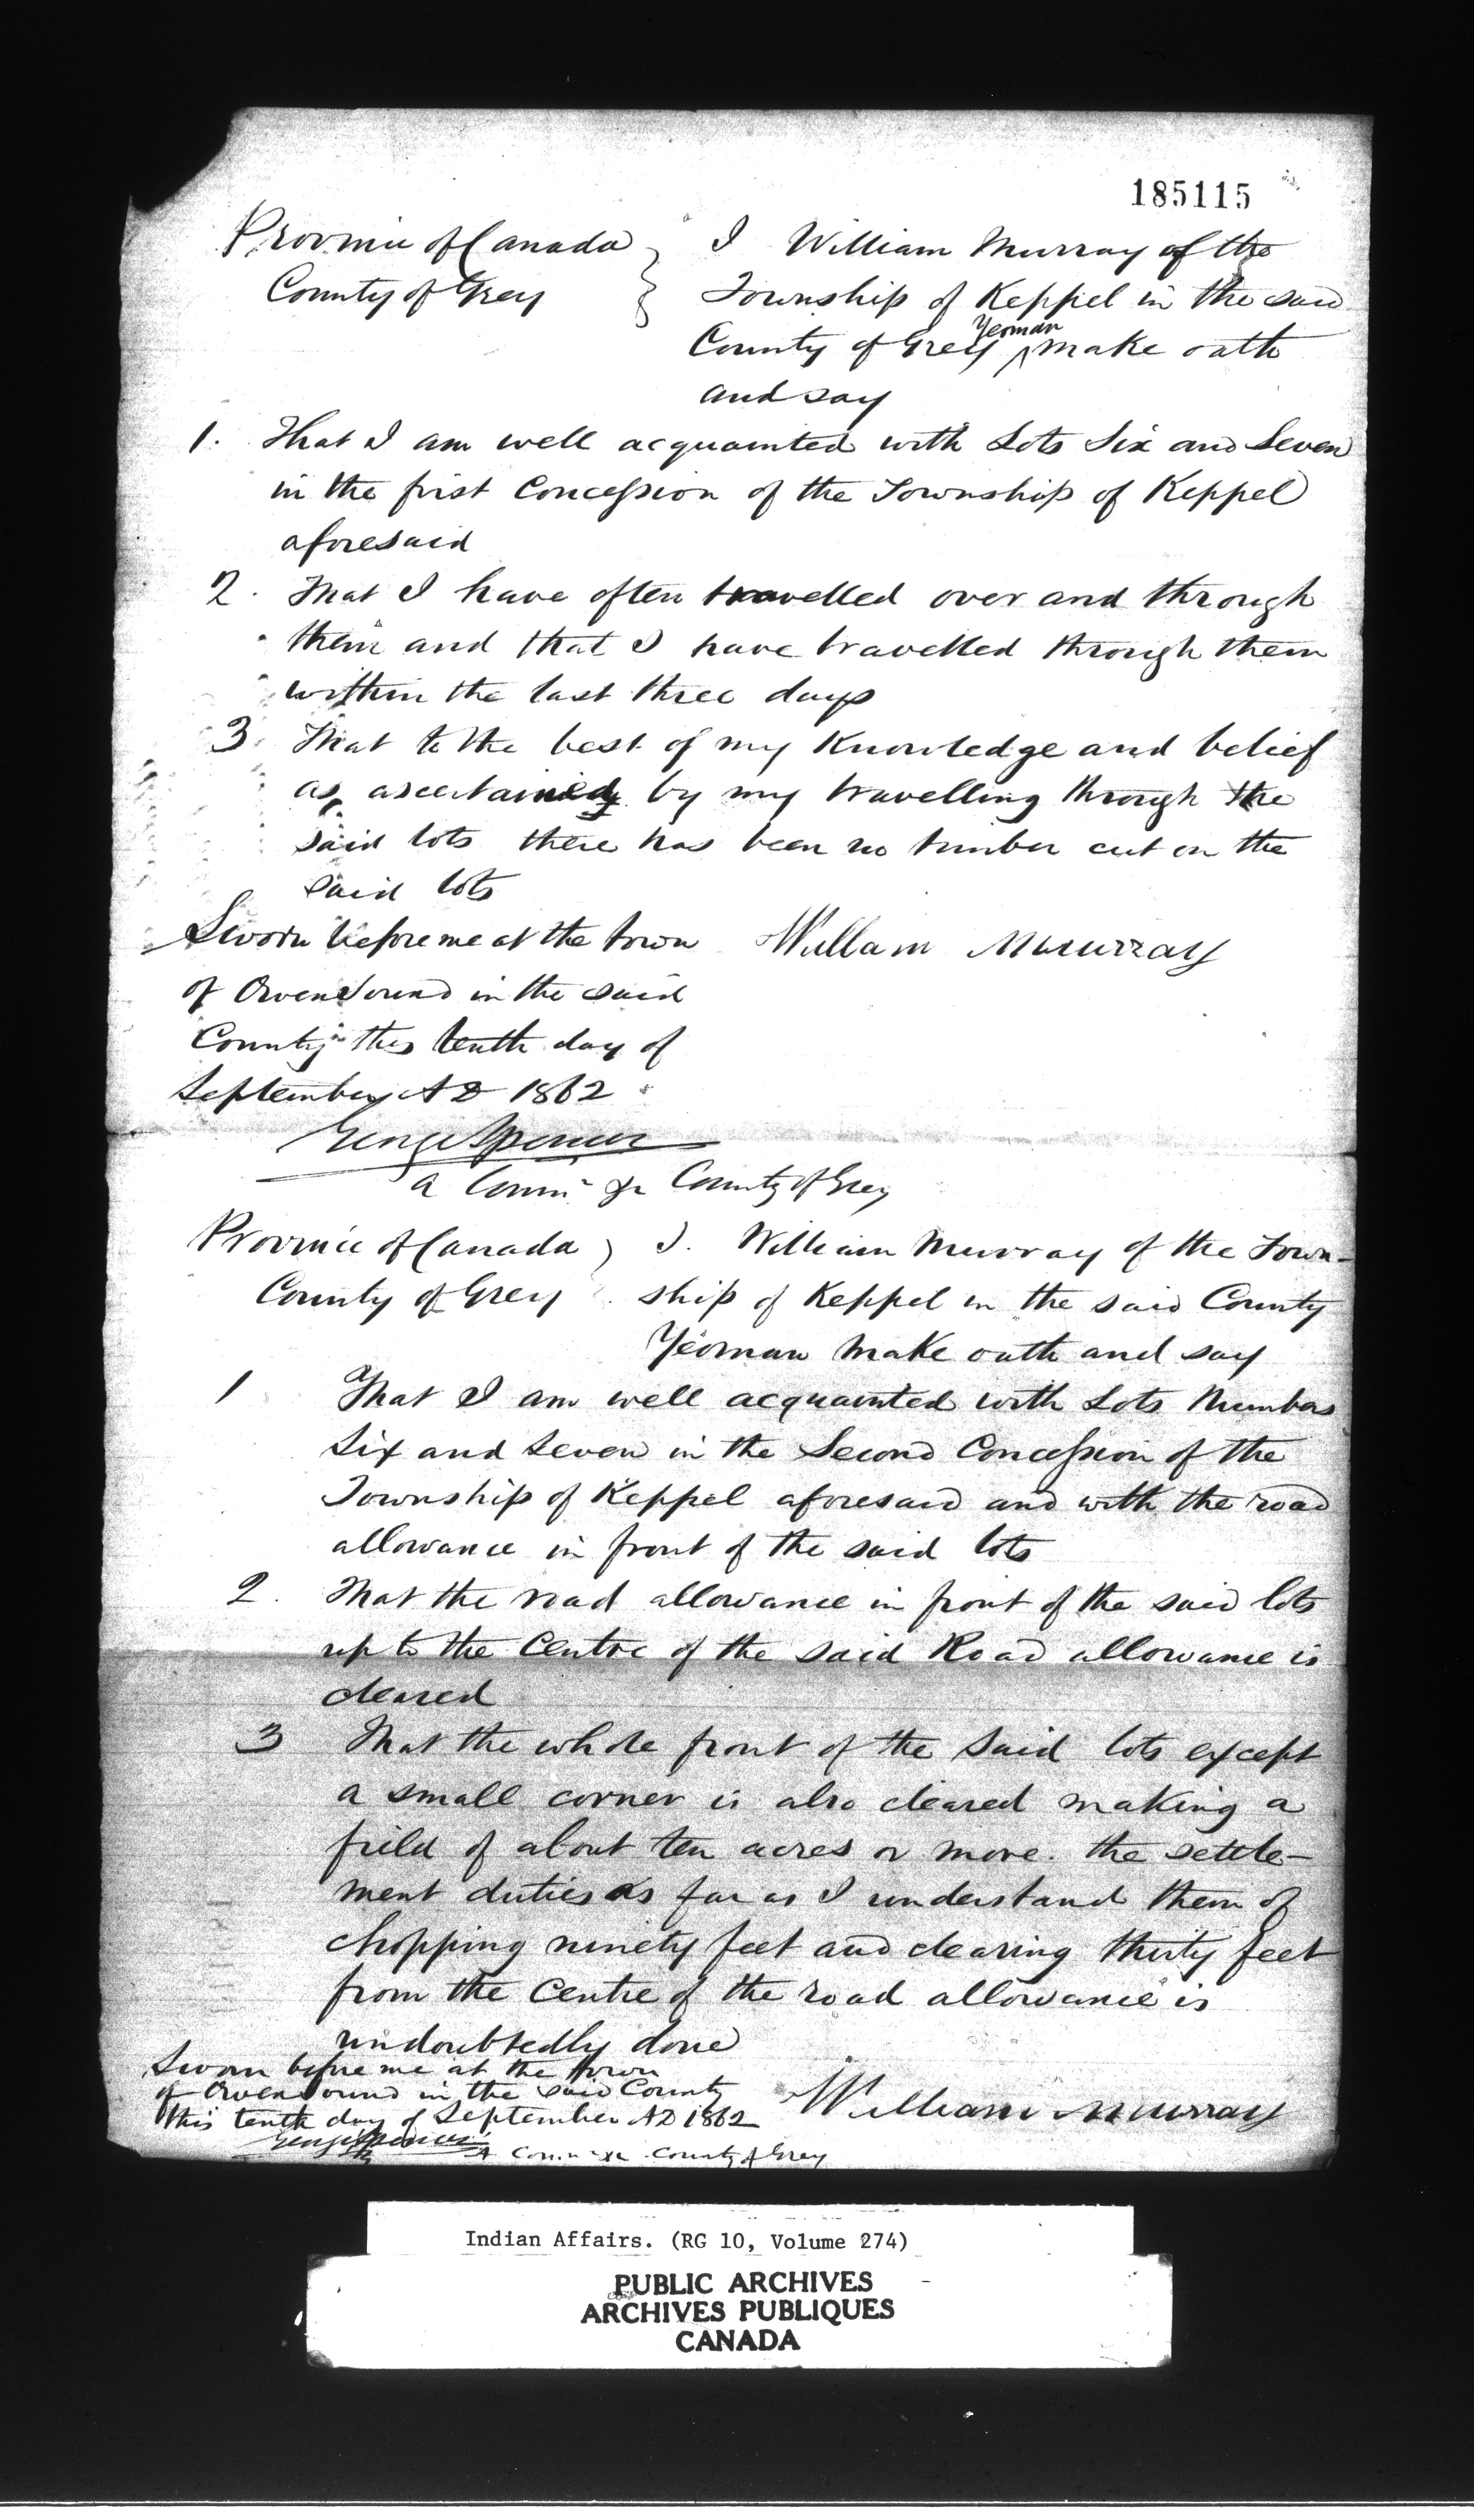 185115
Province of Canada } I William Murray of the
County of Grey } Township of Keppel in the said
County of Grey Yeoman make oath
and say
1. That I am well acquainted with Lots Six and Seven
in the first Concession of the Township of Keppel
aforesaid
2. That I have often travelled over and through
them and that I have travelled through them
within the last three days
3. That to the best of my Knowledge and belief
as ascertained by my travelling through the
said lots there has been no timber cut on the
said lots
Sworn before me at the town William Murray
of Owen Sound in the said
County this tenth day of
September A D 1862
George Spencer
a Commr &c County of Grey
Province of Canada } I. William Murray of the Town-
County of Grey ship of Keppel in the said County
Yeoman make oath and say
1 That I am well acquainted with Lots Numbers
Six and Seven in the Second Concession of the
Township of Keppel aforesaid and with the road
allowance in front of the said lots
2. That the road allowance in front of the said lots
up to the Centre of the said Road allowance is
cleared
3 That the whole front of the said lots except
a small corner is also cleared making a
field of about ten acres or more. the settle-
ment duties as far as I understand them of
chopping ninety feet and clearing thirty feet
from the Centre of the road allowance is
undoubtedly done
Sworn before me at the town
of Owen Sound in the said County William Murray
this tenth day of September AD 1862
George Spencer A Commr &c County of Grey
Indian Affairs. (RG 10, Volume 274)
PUBLIC ARCHIVES
ARCHIVES PUBLIQUES
CANADA